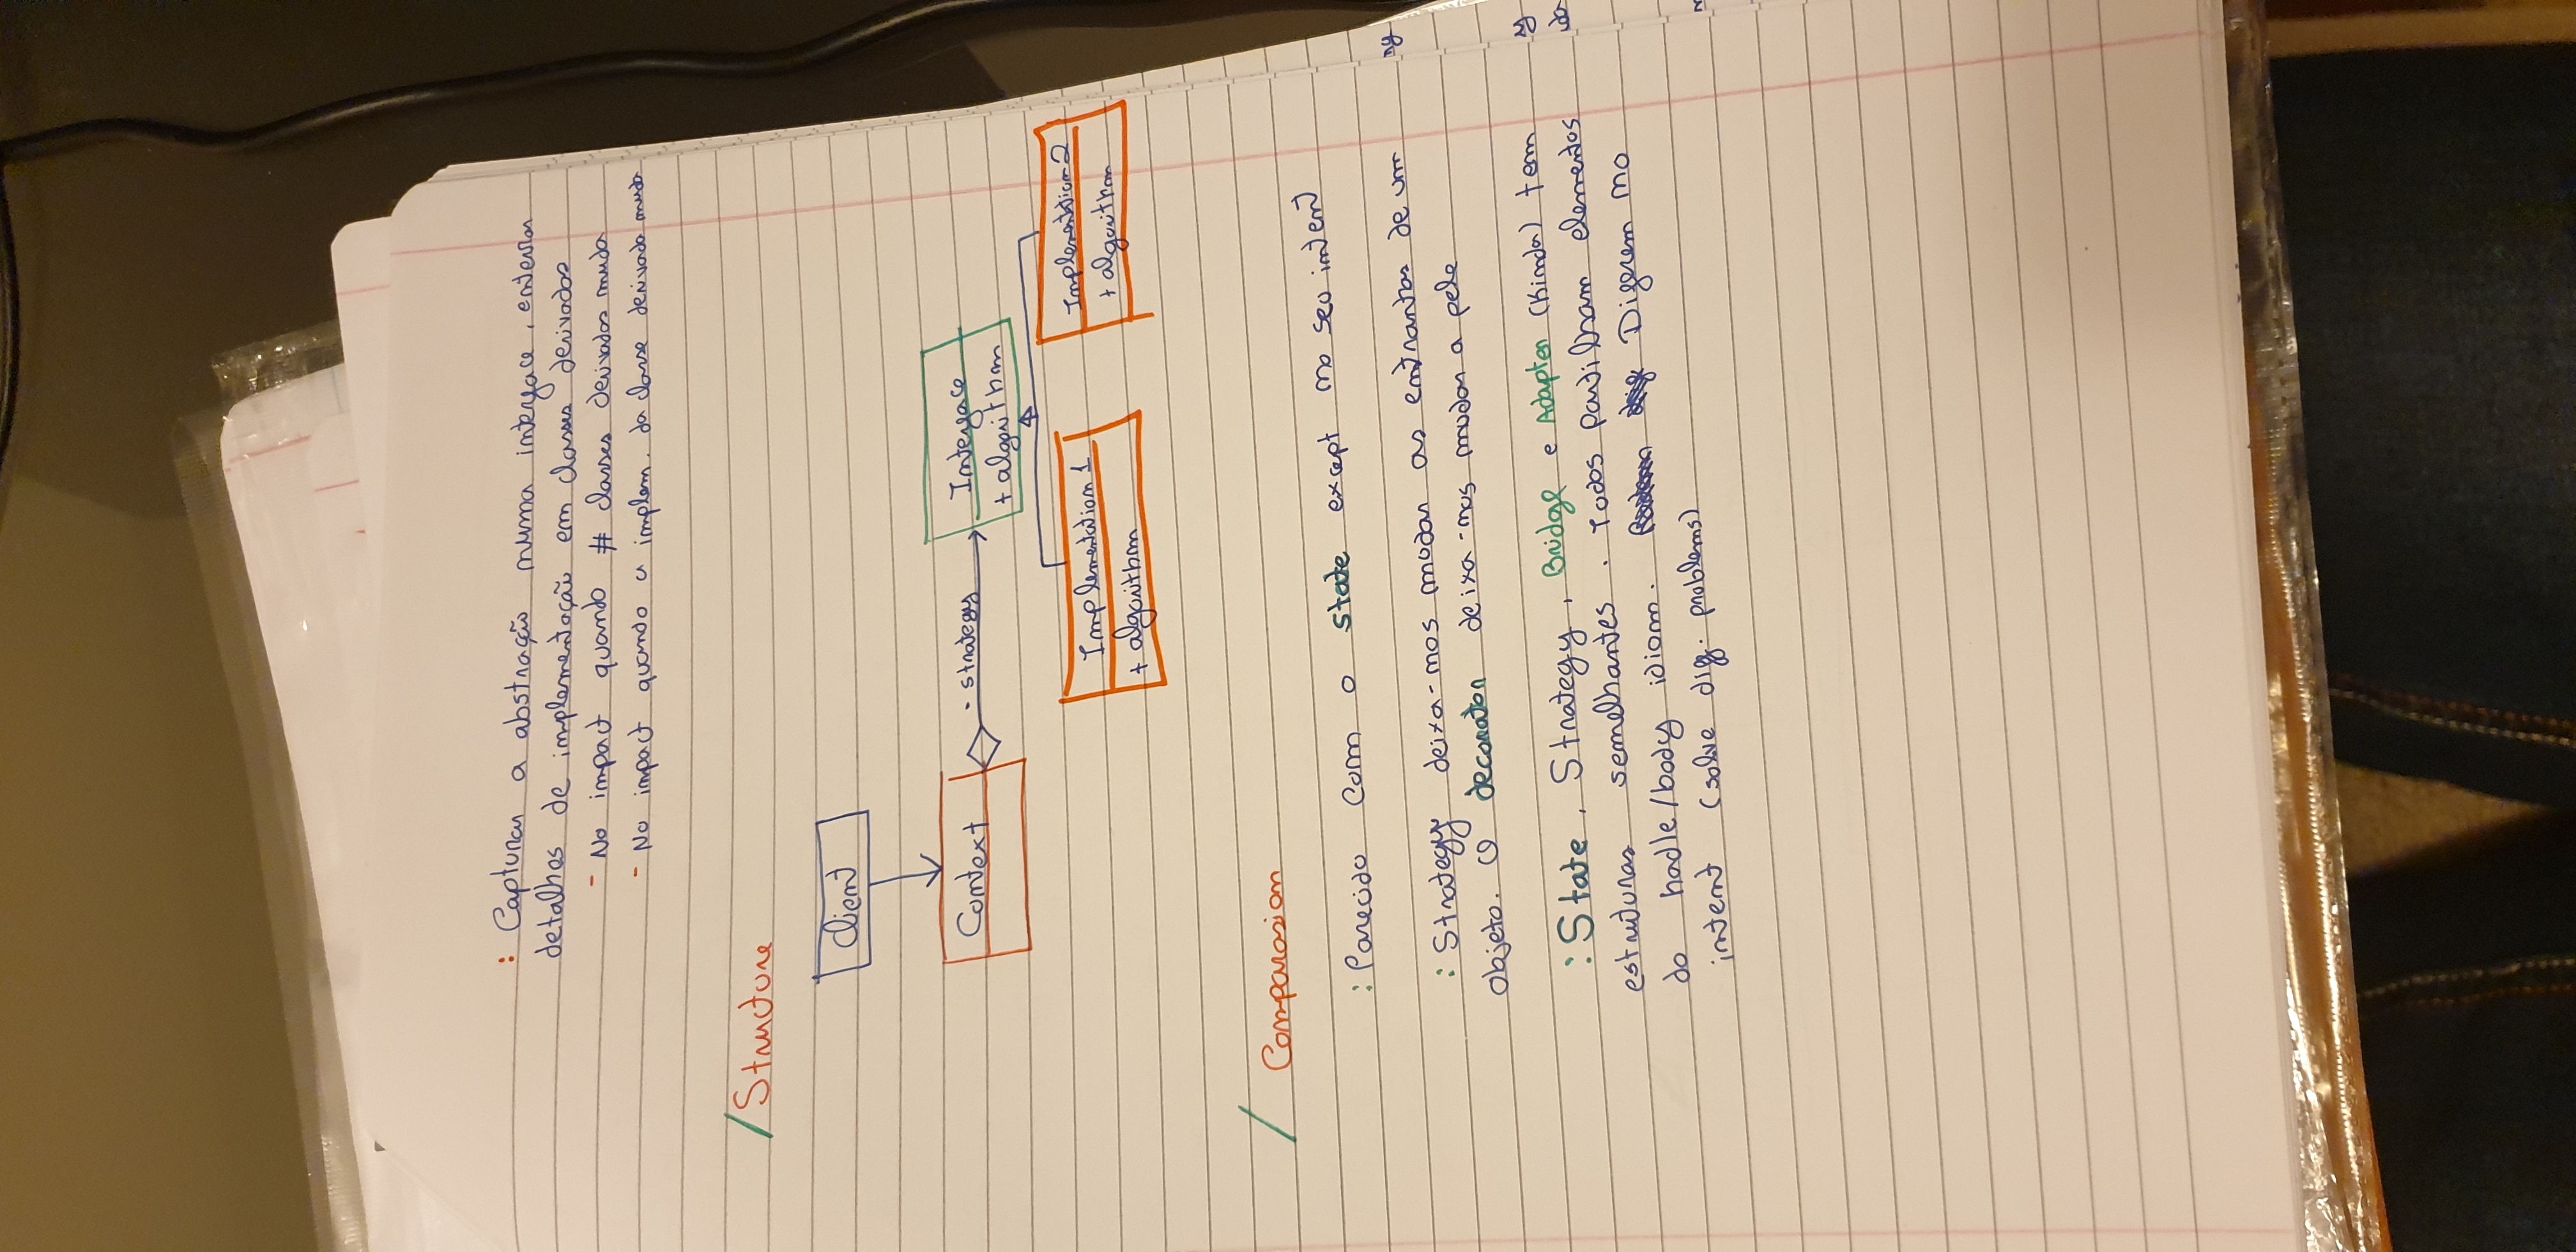 : Capturar a abstração numa interface, enterrar
detalhes de implementação em classes derivadas
- No impact quando # classes derivadas muda
- No impact quando a implem. da classe derivada muda
/ Structure
Client
Context
- strategy
Interface
+ algorithm
Implementation 1
+ algorithm
Implementation 2
+ algorithm
/ Comparasion
: Parecido com o state except no seu intent
: Strategy deixa-nos mudar as entranhas de um
objeto. O decorator deixa-nos mudar a pele
: State, Strategy, Bridge e Adapter (Kinda) tem
estruturas semelhantes. Todos partilham elementos
do hadle/body idiom. Diferem no
intent (solve diff. problems)